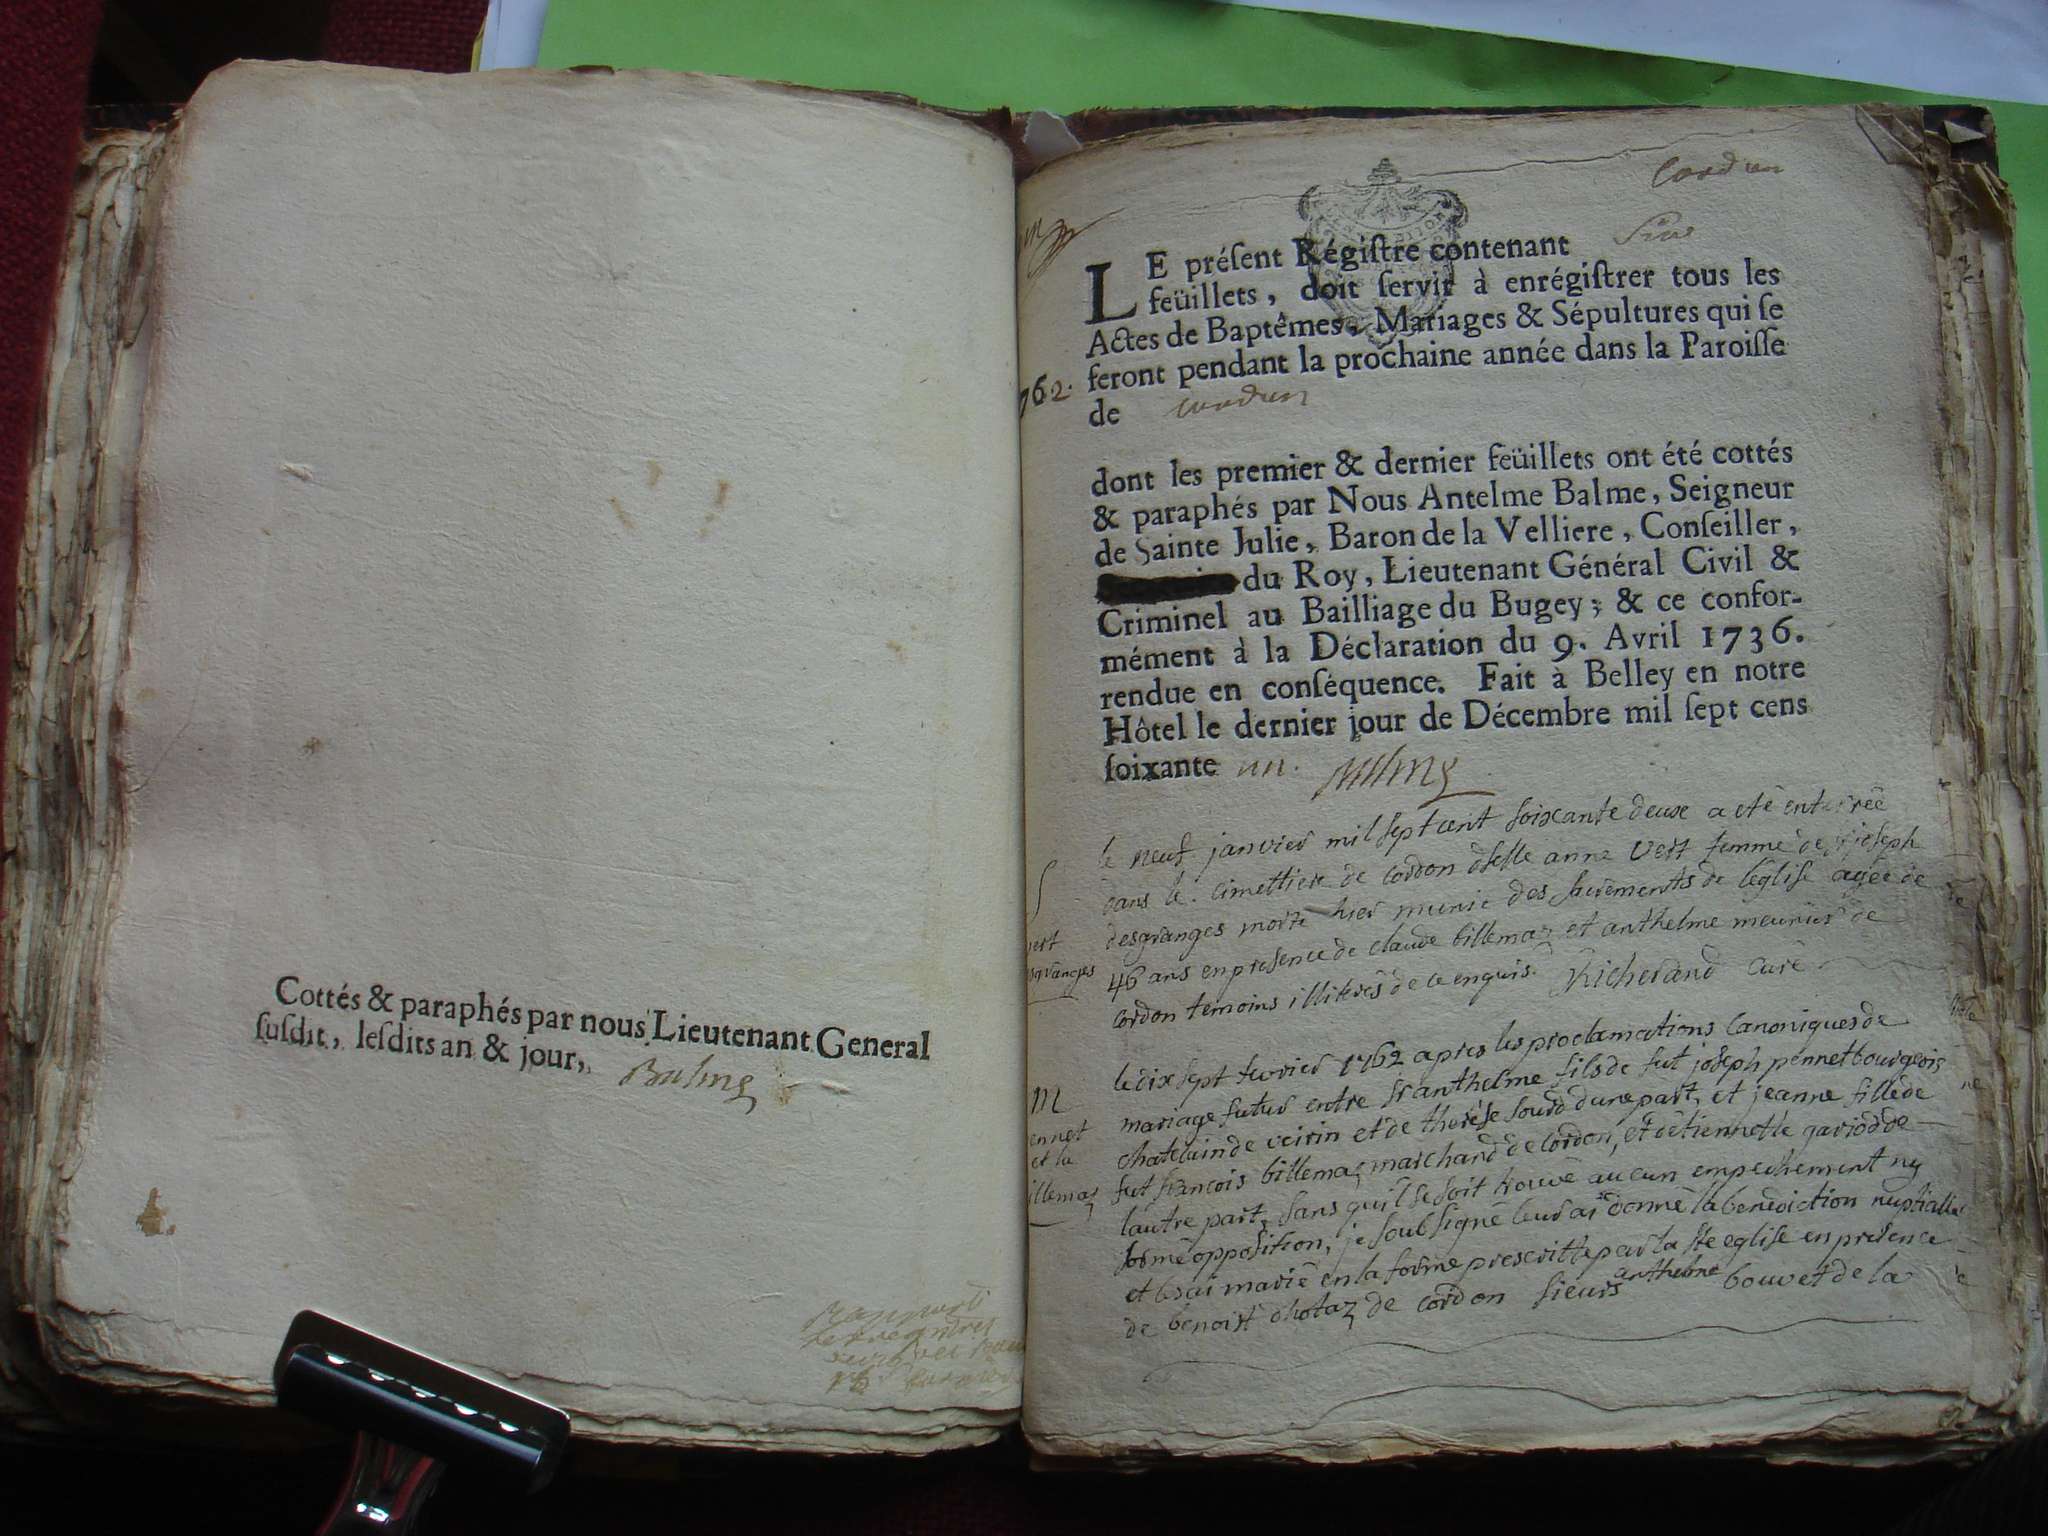 Cottés & paraphés par nous Lieutenant General
ſuſdit, leſdits an & jour, Balme
Cordon
LE préſent Régiſtre contenant Six
feüillets, doit ſervir à enrégiſtrer tous les
Actes de Baptêmes, Mariages & Sépultures qui ſe
feront pendant la prochaine année dans la Paroiſſe
762.
de Cordon
dont les premier & dernier feüillets ont été cottés
& paraphés par Nous Antelme Balme, Seigneur
de Sainte Julie, Baron de la Velliere, Conſeiller,
du Roy, Lieutenant Général Civil &
Criminel au Bailliage du Bugey; & ce confor-
mément à la Déclaration du 9. Avril 1736.
rendue en conſéquence. Fait à Belley en notre
Hôtel le dernier jour de Décembre mil ſept cens
ſoixante un. Balme
S
vert
le neuf janvier mil sept cent soixante deux a eté enterrée
dans le cimettiere de cordon dselle anne vert femme de joseph
desgranges morte hier munie des sacrements de l'eglise agée de
46 ans en presence de claude billemaz et anthelme meunier de
cordon temoins illiterés de ce enquis. Richerand curé
M
ennet
et la
illemaz
le dix sept fevrier 1762 apres les proclamations canoniques de
mariage futur entre sr anthelme fils de fut joseph pennet bourgeois
chatelain de veirin et de therese sourd dune part, et jeanne fille de
fut francois billemaz marchand de cordon, et detiennette gariod de
lautre part, sans quil se soit trouvé aucun empechement ny
formé opposition, je soubsigné leur ai donné la benediction nuptialle
et les ai marié en la forme prescritte par la ste eglise en presence
de benoist dhotaz de cordon sieurs anthelme bouvet de la